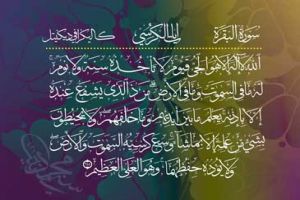 سورة البقرة
الله لا إله إلا هو الحي القيوم لا تأخذه سنة ولا نوم
له ما في السموت وما في الأرض من ذا الذي يشفع عنده
إلا بإذنه يعلم ما بين أيديهم وما خلفهم ولا يحيطون
بشيء من علمه إلا بما شاء وسع كرسيه السموت والأرض
ولا يئوده حفظهما وهو العلي العظيم